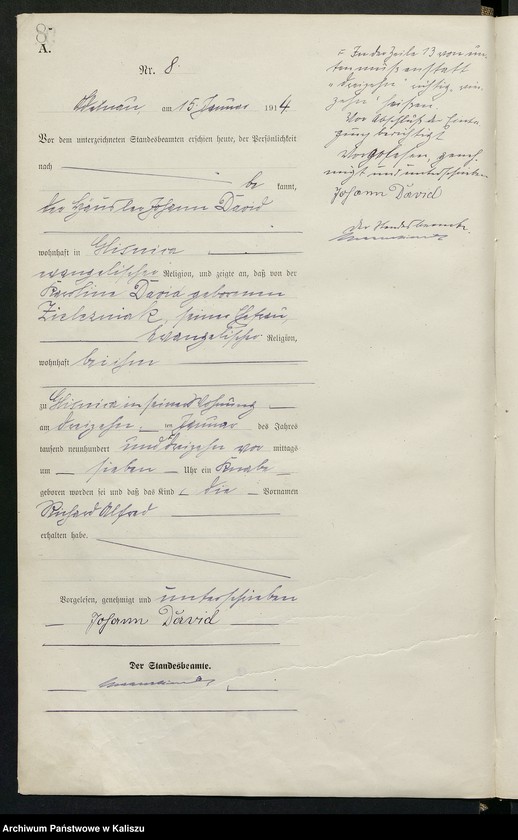 8.
A.
Nr. 8.
am 15 Januar 1914.
Vor dem unterzeichneten Standesbeamten erschien heute, der Persönlichkeit
nach
be
kannt,
der Häusler Johann David
wohnhaft in Glisnica
evangelischer Religion, und zeigte an, daß von der
Karoline David geborenen
Zielezniak, seiner Ehefrau,
evangelischer Religion,
wohnhaft bei ihm
zu Glisnica in seiner Wohnung
am dreizehn ten Januar des Jahres
tausend neunhundert und dreizehn vor mittags
um sieben Uhr ein Knabe
geboren worden sei und daß das Kind die Vornamen
Richard Alfred
erhalten habe.
Vorgelesen, genehmigt und unterschrieben
Johann David
Der Standesbeamte.
In der Zeile 13 von un-
ten muß es statt
"dreizehn" richtig "vier-
zehn" heißen.
Vor Abschluß der Eintra-
gung berichtigt
Vorgelesen, geneh-
migt und unterschrieben
Johann David
Der Standesbeamte.
Archiwum Państwowe w Kaliszu